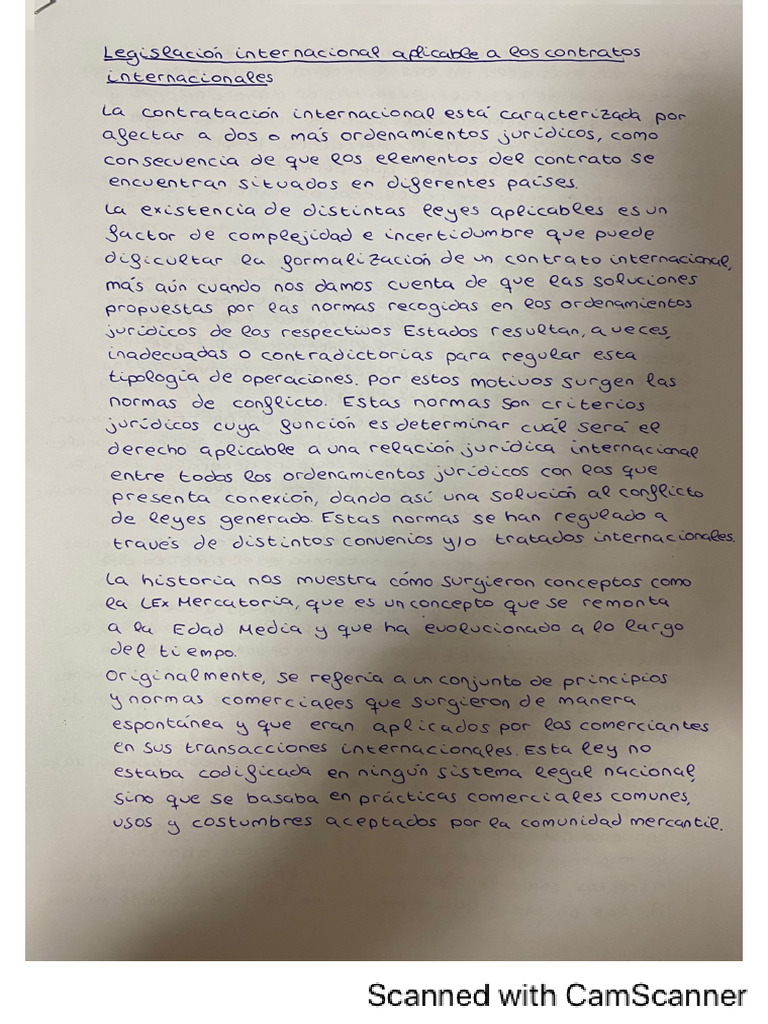 Legislación internacional aplicable a los contratos
internacionales
La contratación internacional está caracterizada por
afectar a dos o más ordenamientos jurídicos, como
consecuencia de que los elementos del contrato se
encuentran situados en diferentes países.
La existencia de distintas leyes aplicables es un
factor de complejidad e incertidumbre que puede
dificultar la formalización de un contrato internacional,
más aún cuando nos damos cuenta de que las soluciones
propuestas por las normas recogidas en los ordenamientos
jurídicos de los respectivos Estados resultan, a veces,
inadecuadas o contradictorias para regular esta
tipología de operaciones. Por estos motivos surgen las
normas de conflicto. Estas normas son criterios
jurídicos cuya función es determinar cuál será el
derecho aplicable a una relación jurídica internacional
entre todos los ordenamientos jurídicos con los que
presenta conexión, dando así una solución al conflicto
de leyes generado. Estas normas se han regulado a
través de distintos convenios y/o tratados internacionales.
La historia nos muestra cómo surgieron conceptos como
la Lex Mercatoria, que es un concepto que se remonta
a la Edad Media y que ha evolucionado a lo largo
del tiempo.
Originalmente, se refería a un conjunto de principios
y normas comerciales que surgieron de manera
espontánea y que eran aplicados por los comerciantes
en sus transacciones internacionales. Esta ley no
estaba codificada en ningún sistema legal nacional,
sino que se basaba en prácticas comerciales comunes,
usos y costumbres aceptados por la comunidad mercantil.
Scanned with CamScanner